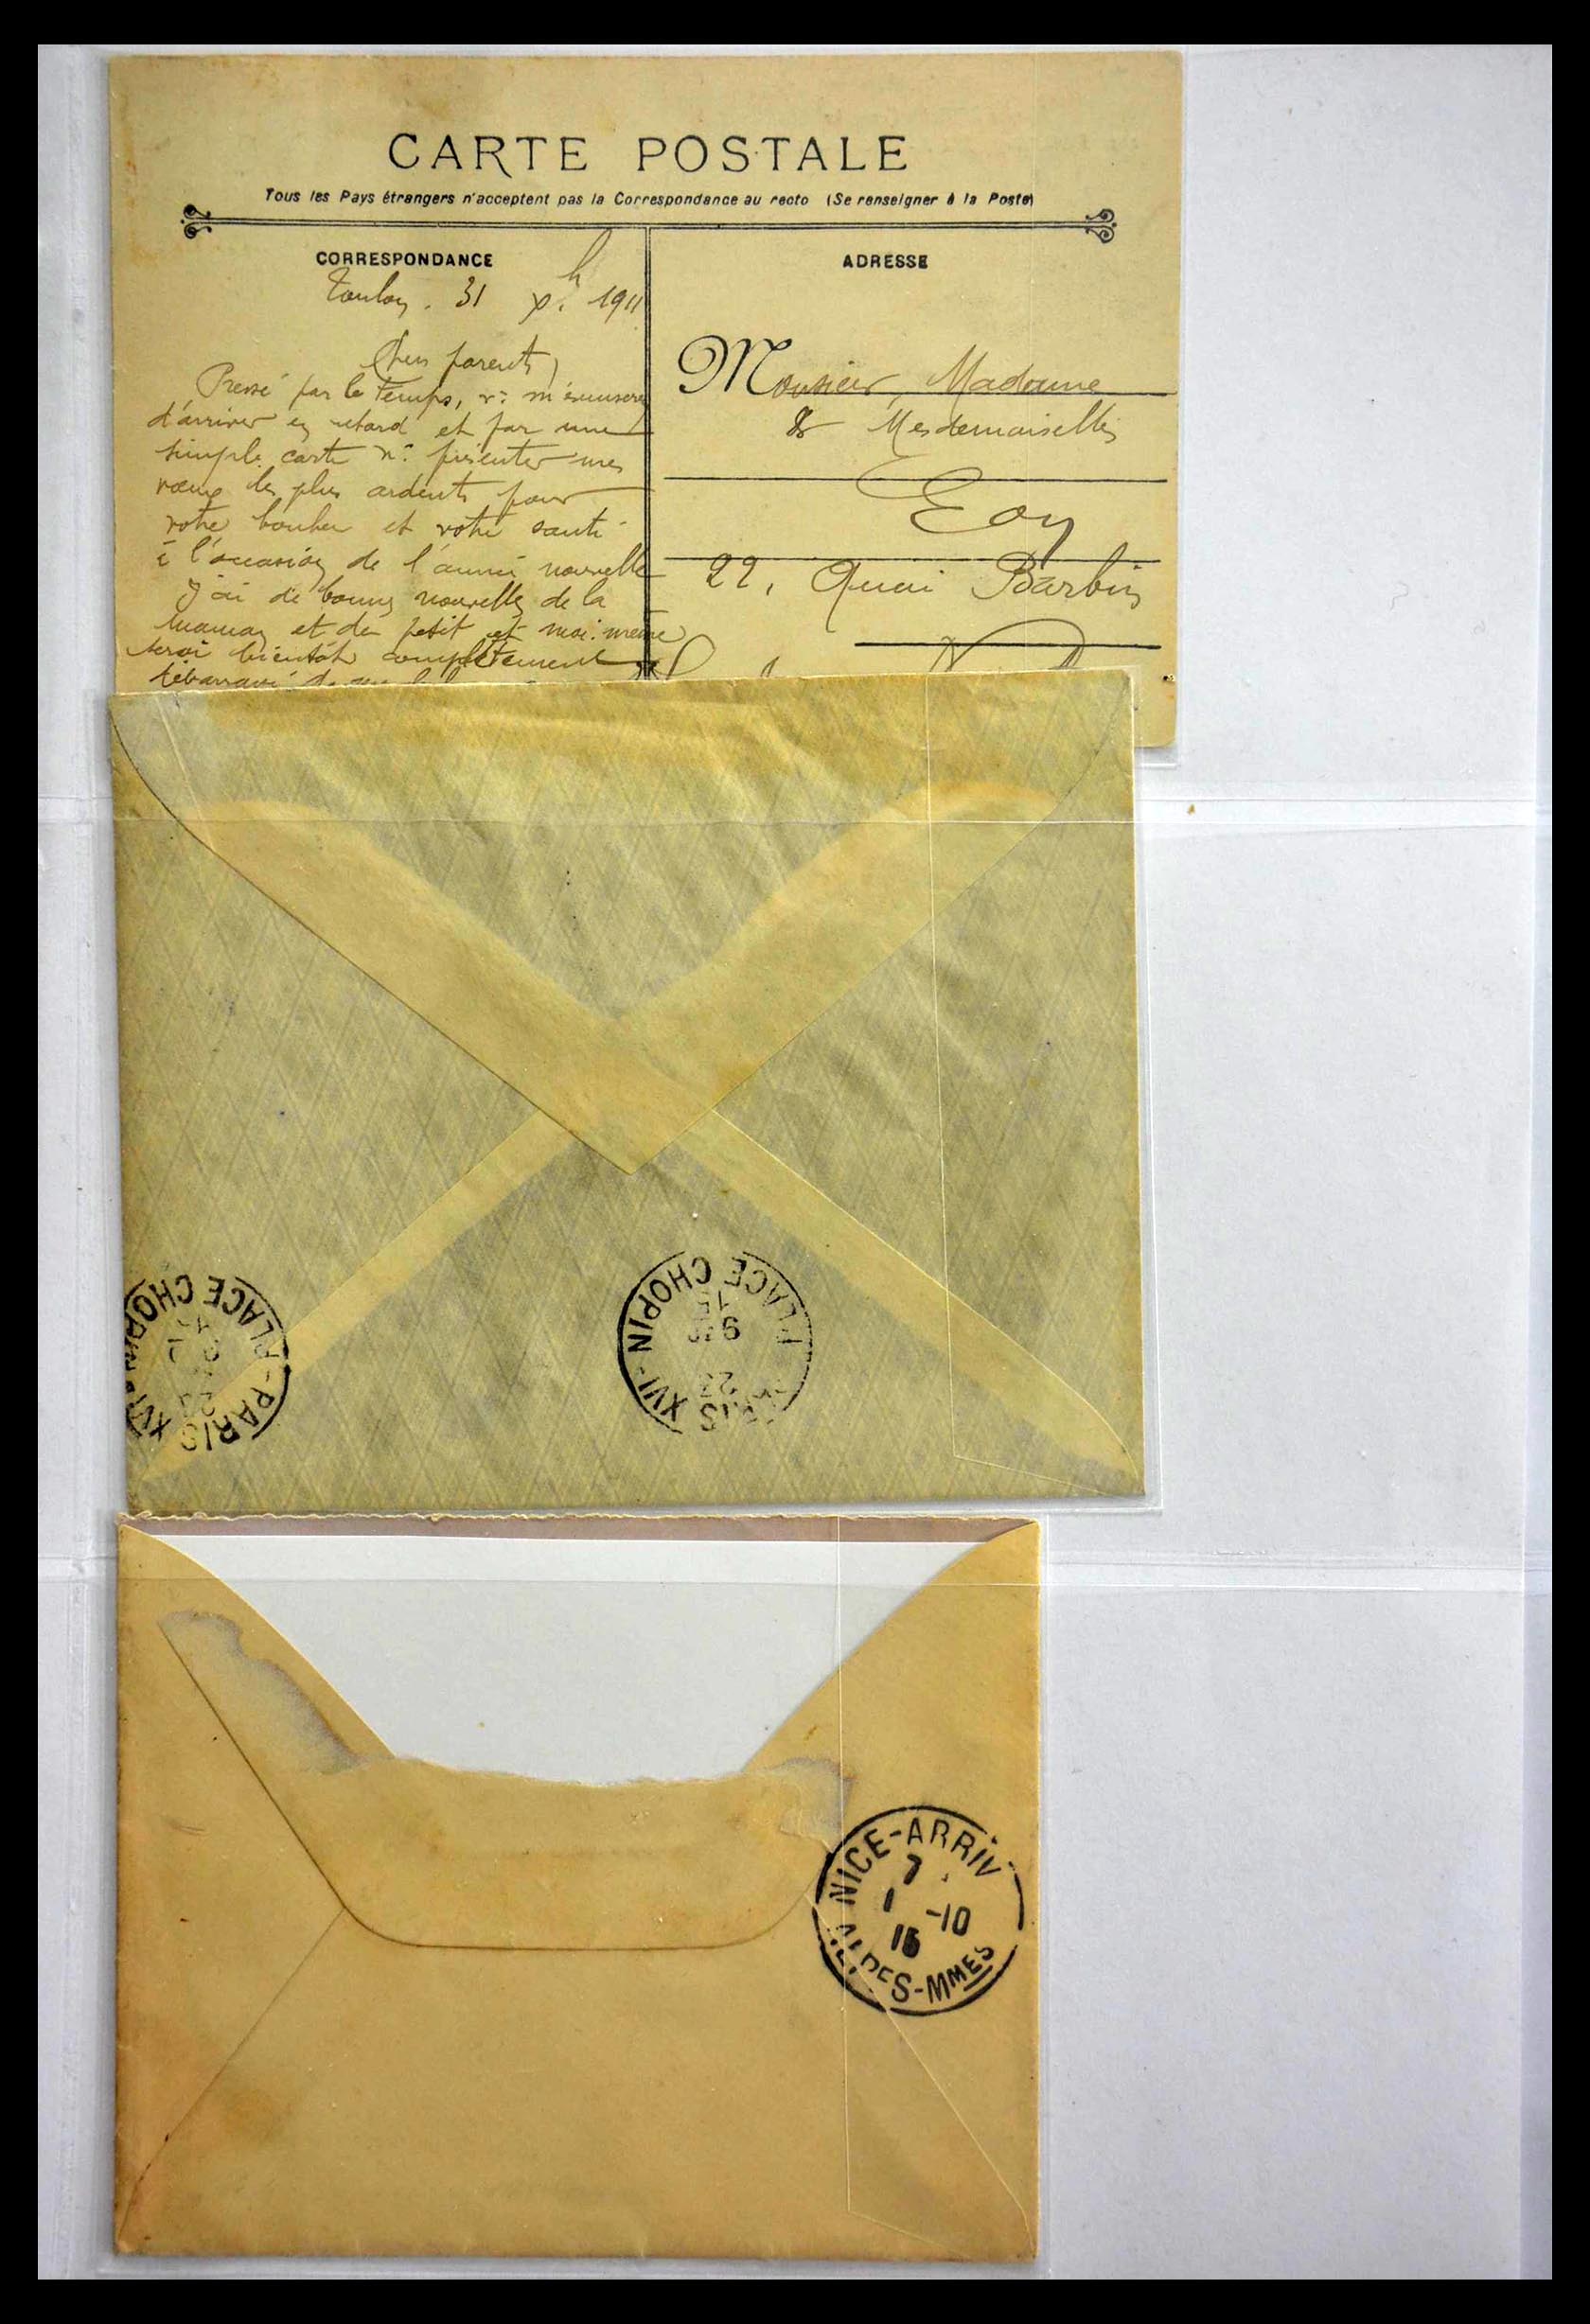 CARTE POSTALE
Tous les Pays étrangers n'acceptent pas la Correspondance au recto (Se renseigner à la Poste)
CORRESPONDANCE
Toulon. 31 Xbre 1911
Chers parents,
Pressé par le temps, v: m'excuserez
d'arriver en retard et par une
simple carte v: présenter mes
vœux les plus ardents pour
votre bonheur et votre santé
à l'occasion de l'année nouvelle
J'ai de bonnes nouvelles de la
maman et du petit et moi-même
serai bientôt complètement
débarrassé de
ADRESSE
Monsieur, Madame
& Mesdemoiselles
Eon
22, Quai Barbin
PARIS XVI - PLACE CHOPIN
PARIS XVI - PLACE CHOPIN
NICE-ARRIV
7
1 -10
15
ALPES-MMES